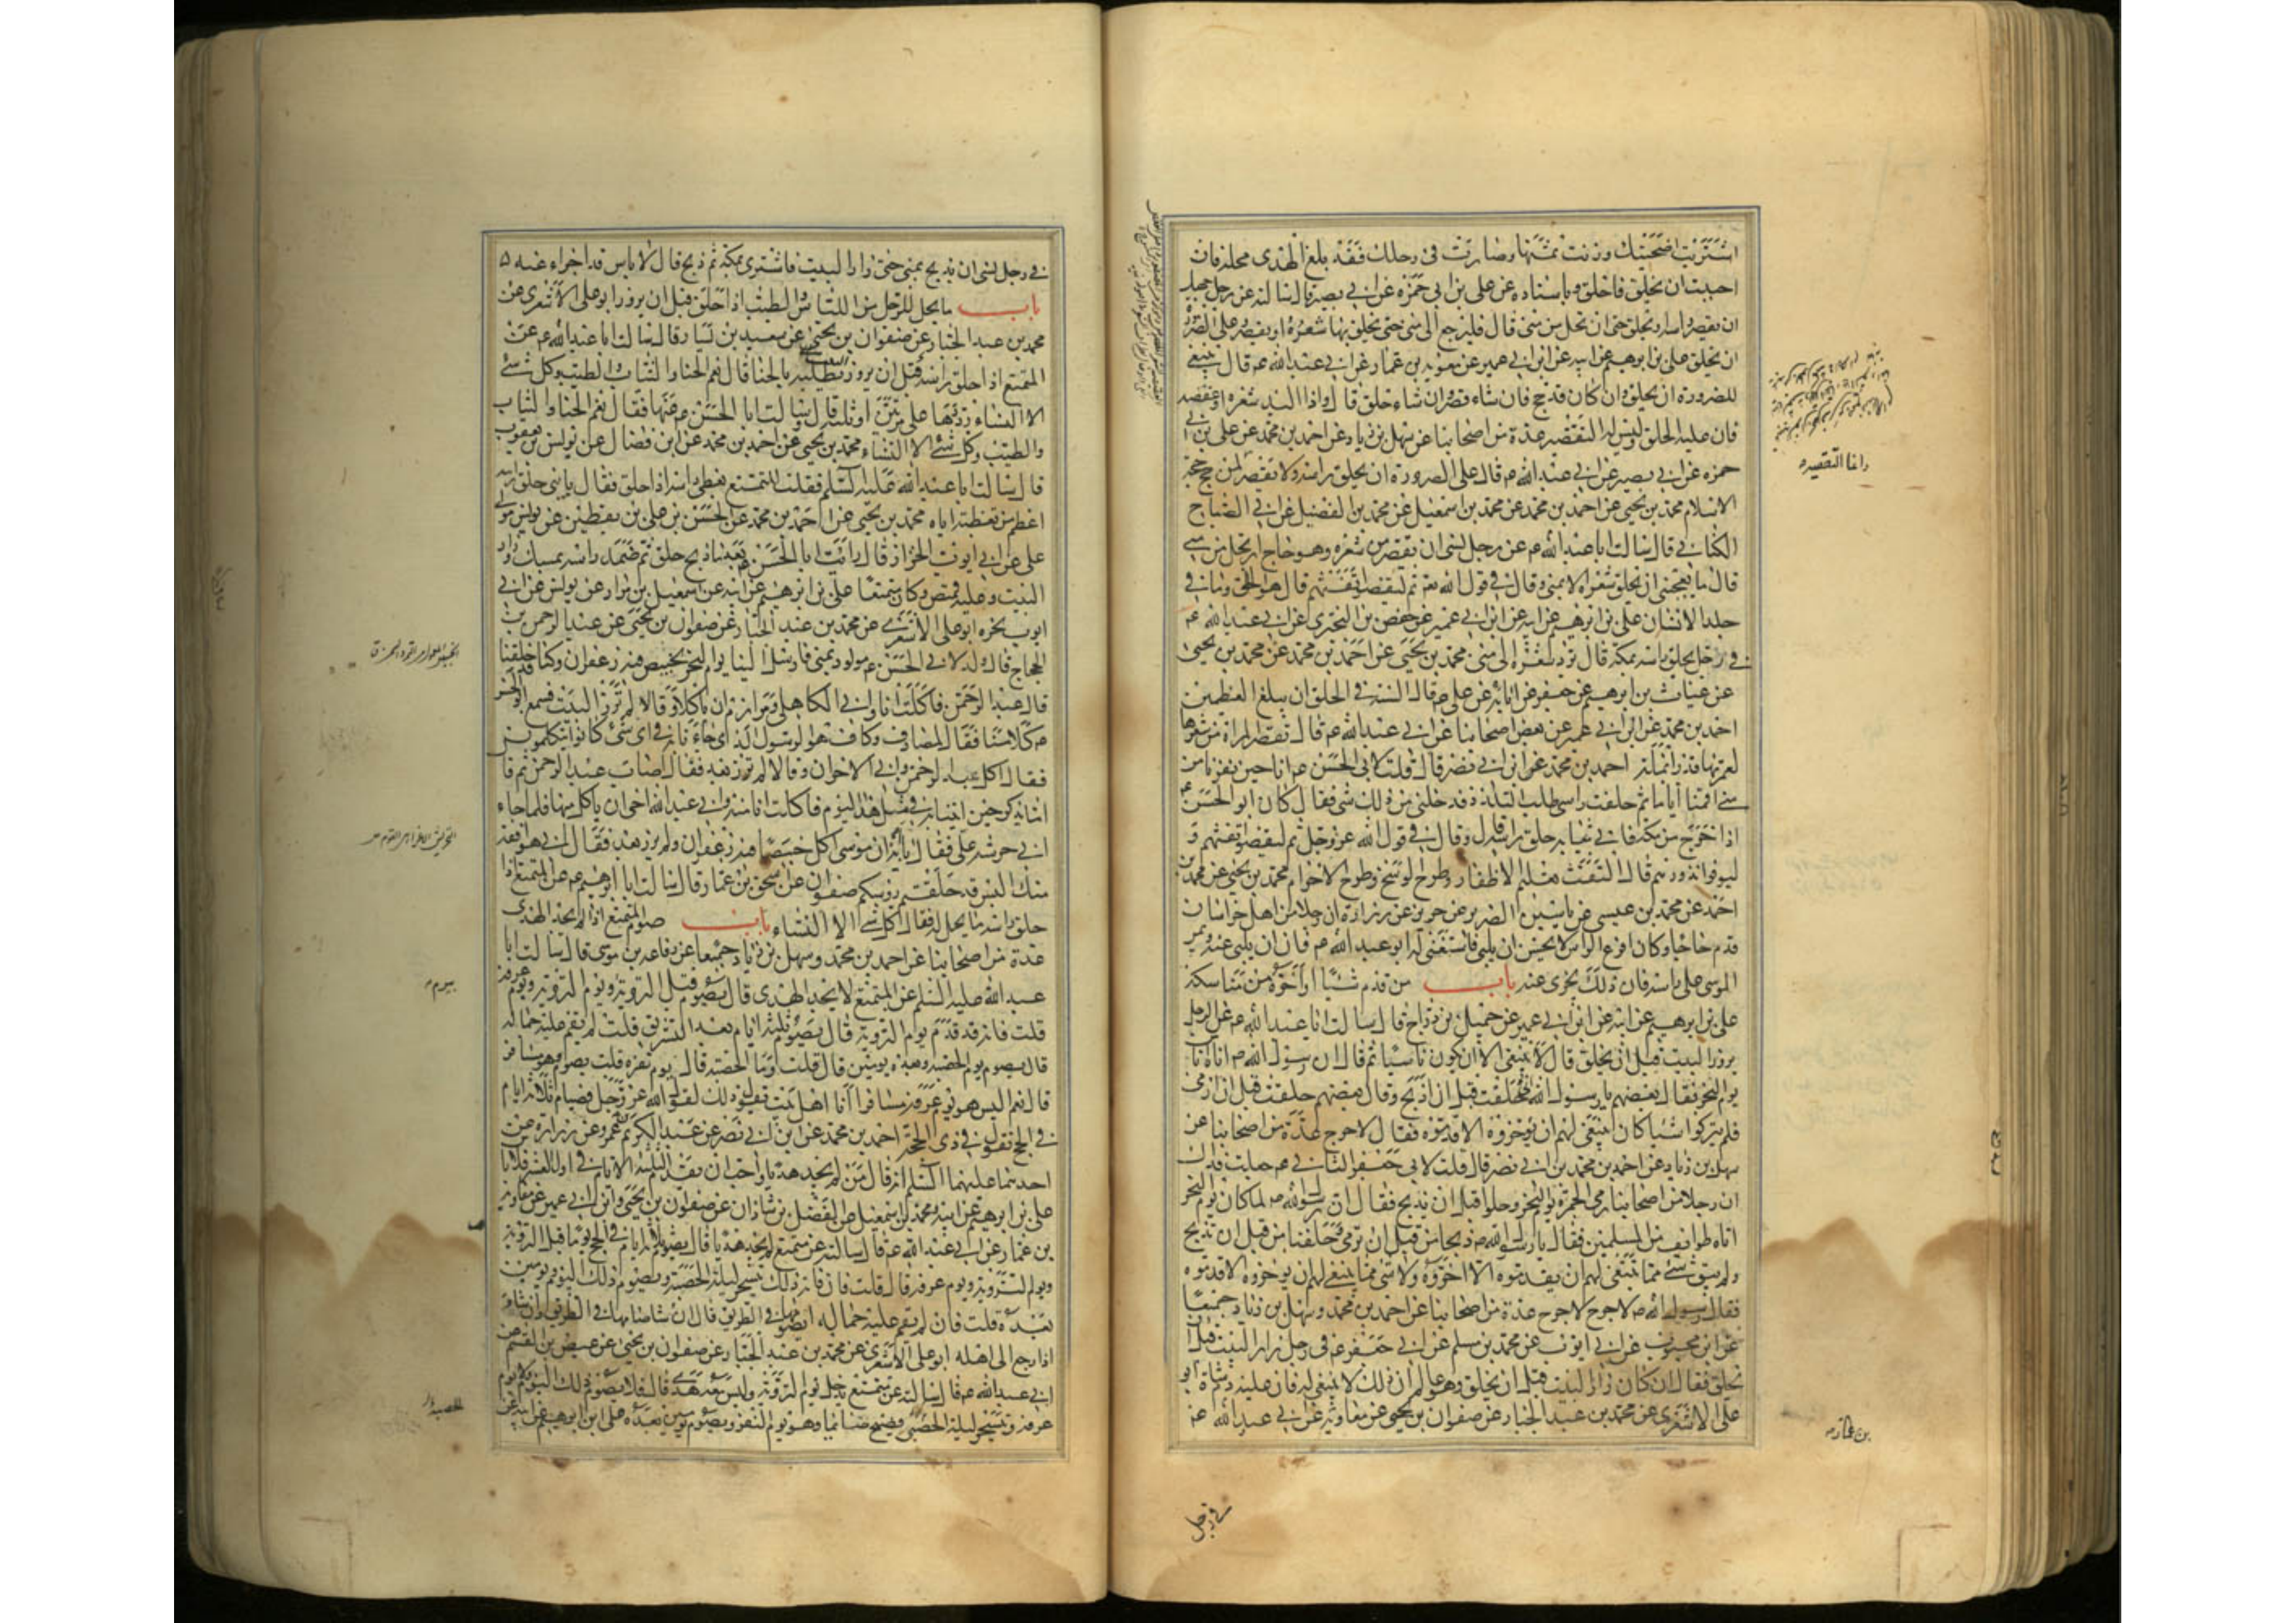 اشتريت اضحيتك ووزنت ثمنها وصارت في رحلك فقد بلغ الهدى محله فان
احببت ان تحلق فاحلق وباسناده عن علي بن ابي حمزه عن ابي بصير قال سالته عن رجل جهل
ان يقصر راسه او يحلق حتى ارتحل من منى قال فليرجع الى منى حتى يحلق بها شعره او يقصر وعلى الصرورة
ان يحلق علي بن ابرهيم عن ابيه عن ابن ابي عمير عن معويه بن عمار عن ابي عبد الله ع قال ينبغي
للصرورة ان يحلق وان كان قد حج فان شاء قصر وان شاء حلق قال واذا لبد شعره او عقصه
فان عليه الحلق وليس له التقصير عدة من اصحابنا عن سهل بن زياد عن احمد بن محمد عن علي بن ابي
حمزه عن ابي بصير عن ابي عبد الله ع قال على الصرورة ان يحلق راسه ولا يقصر لمن حج حجة
الاسلام محمد بن يحيى عن احمد بن محمد عن محمد بن اسمعيل عن محمد بن الفضيل عن ابي الصباح
الكناني قال سالت ابا عبد الله ع عن رجل نسي ان يقصر من شعره وهو حاج ارتحل من منى
قال ما يعجبني ان يلقي شعره الا بمنى وقال في قول الله عز ثم ليقضوا تفثهم قال هو الحلق وما في
جلد الانسان علي بن ابرهيم عن ابيه عن ابن ابي عمير عن حفص بن البختري عن ابي عبد الله ع
في رجل يحلق راسه بمكة قال يرد الشعر الى منى محمد بن يحيى عن احمد بن محمد عن محمد بن يحيى
عن غياث بن ابرهيم عن جعفر عن ابائه عن علي ع قال السنة في الحلق ان يبلغ العظمين
احمد بن محمد عن ابن ابي عمير عن بعض اصحابنا عن ابي عبد الله ع قال تقصر المراة من شعرها
لعمرتها قدر انملة احمد بن محمد عن ابن ابي نصر قال قلت لابي الحسن ع انا حين نفرنا من
منى اقمنا اياما ثم حلقت راسي طلب التلذذ فدخلني من ذلك شي فقال كان ابو الحسن ع
اذا خرج من مكة فاتي بثيابه حلق راسه قال وقال في قول الله عز وجل ثم ليقضوا تفثهم و
ليوفوا نذورهم قال التفث تقليم الاظفار وطرح الوسخ وطرح الاحرام محمد بن يحيى عن محمد بن
احمد عن محمد بن عيسى عن ياسين الضرير عن حريز عن زرارة ان رجلا من اهل خراسان
قدم حاجا وكان اقرع الراس لا يحسن ان يلبي فاستفتي له ابو عبد الله ع فامر ان يلبى عنه ويمر
الموسى على راسه فان ذلك يجزى عنه باب من قدم شيئا او اخره من مناسكه
علي بن ابرهيم عن ابيه عن ابن ابي عمير عن جميل بن دراج قال سالت ابا عبد الله ع عن الرجل
يزور البيت قبل ان يحلق قال لا ينبغي الا ان يكون ناسيا ثم قال ان رسول الله ص اتاه اناس
يوم النحر فقال بعضهم يا رسول الله حلقت قبل ان اذبح وقال بعضهم حلقت قبل ان ارمي
فلم يتركوا شيئا كان ينبغي لهم ان يؤخروه الا قدموه فقال لا حرج عدة من اصحابنا عن
سهل بن زياد عن احمد بن محمد بن ابي نصر قال قلت لابي جعفر الثاني ع جعلت فداك
ان رجلا من اصحابنا رمى الجمرة يوم النحر وحلق قبل ان يذبح فقال ان رسول الله ص لما كان يوم النحر
اتاه طوايف من المسلمين فقال يا رسول الله ذبحنا من قبل ان نرمي وحلقنا من قبل ان نذبح
ولم يبق شئ مما ينبغي لهم ان يقدموه الا اخروه ولا شئ مما ينبغي لهم ان يؤخروه الا قدموه
فقال رسول الله ص لا حرج لا حرج عدة من اصحابنا عن احمد بن محمد وسهل بن زياد جميعا
عن ابن محبوب عن ابي ايوب عن محمد بن مسلم عن ابي جعفر ع في رجل زار البيت قبل ان
يحلق فقال ان كان زار البيت قبل ان يحلق وهو عالم ان ذلك لا ينبغي له فان عليه دم شاة ابو
علي الاشعري عن محمد بن عبد الجبار عن صفوان بن يحيى عن معاوية عن ابي عبد الله ع
واما التقصير
بن عمار
في رجل
في رجل نسي ان يذبح بمنى حتى زار البيت فاشترى بمكة ثم ذبح قال لا باس قد اجزاء عنه
باب ما يحل للرجل من اللباس والطيب اذا حلق قبل ان يزور ابو علي الاشعري عن
محمد بن عبد الجبار عن صفوان بن يحيى عن سعيد بن يسار قال سالت ابا عبد الله ع عن
المتمتع اذا حلق راسه قبل ان يزور يطليه بالحنا قال نعم الحنا والثياب والطيب وكل شئ
الا النساء رددها علي مرتين او ثلثة قال وسالت ابا الحسن ع عنها فقال نعم الحنا والثياب
والطيب وكل شئ الا النساء محمد بن يحيى عن احمد بن محمد عن ابن فضال عن يونس بن يعقوب
قال سالت ابا عبد الله عليه السلم فقلت المتمتع يغطى راسه اذا حلق فقال يا بني حلق راسه
اعظم من تغطيته اياه محمد بن يحيى عن احمد بن محمد عن الحسن بن علي بن يقطين عن يونس مولى
علي عن ابي ايوب الخزاز قال رايت ابا الحسن ع بعد ما ذبح حلق ثم ضمد راسه بمسك وزار
البيت وعليه قميص وكان متمتعا علي بن ابرهيم عن ابيه عن اسمعيل بن مرار عن يونس عن ابي
ايوب نحوه ابو علي الاشعري عن محمد بن عبد الجبار عن صفوان بن يحيى عن عبد الرحمن بن
الحجاج قال ولد لابي الحسن ع مولود بمنى فارسل الينا يوم النحر بخبيص فيه زعفران وكنا قد حلقنا
قال عبد الرحمن فاكلت انا وابي الكاهلي ومرازم ان ياكلا وقالا لم نزر البيت فسمع ابو الحسن
ع كلامنا فقال لمصادف وكان هو الرسول الذي جاءنا به في اي شئ كانوا يتكلمون
فقال اكل عبد الرحمن وابي الاخران وقالا لم نزر بعد فقال اصاب عبد الرحمن ثم قال
اما تذكر حين اتينا به في مثل هذا اليوم فاكلت انا منه وابي عبد الله اخي ان ياكل منها فلما جاء
ابي حرشه علي فقال يا ابة ان موسى اكل خبيصا فيه زعفران ولم يزر بعد فقال ابي هو افقه
منك اليس قد حلقتم رؤسكم صفوان عن اسحق بن عمار قال سالت ابا ابرهيم ع عن المتمتع اذا
حلق راسه ما يحل له فقال كل شئ الا النساء باب صوم المتمتع اذا لم يجد الهدى
عدة من اصحابنا عن احمد بن محمد وسهل بن زياد جميعا عن رفاعه بن موسى قال سالت ابا
عبد الله عليه السلم عن المتمتع لا يجد الهدى قال يصوم قبل التروية ويوم التروية ويوم عرفة
قلت فانه قد قدم يوم التروية قال يصوم ثلثة ايام بعد التشريق قلت لم يقم عليه جماله
قال يصوم يوم الحصبه وبعده يومين قال قلت وما الحصبه قال يوم نفره قلت يصوم وهو مسافر
قال نعم اليس هو يوم عرفة مسافرا انا اهل بيت نقول ذلك لقول الله عز وجل فصيام ثلاثة ايام
في الحج نقول في ذي الحجة احمد بن محمد عن ابن ابي نصر عن عبد الكريم بن عمرو عن زرارة عن
احدهما عليهما السلم انه قال من لم يجد هديا واحب ان يقدم الثلثة الايام في اول العشر فلا باس
علي بن ابرهيم عن ابيه ومحمد بن اسمعيل عن الفضل بن شاذان عن صفوان بن يحيى وابن ابي عمير عن معاوية
بن عمار عن ابي عبد الله ع قال سالته عن متمتع لم يجد هديا قال يصوم ثلثة ايام في الحج يوما قبل التروية
ويوم التروية ويوم عرفه قال قلت فان فاته ذلك قال يتسحر ليلة الحصبة ويصوم ذلك اليوم ويومين
بعده قلت فان لم يقم عليه جماله ايصومها في الطريق قال ان شاء صامها في الطريق وان شاء
اذا رجع الى اهله ابو علي الاشعري عن محمد بن عبد الجبار عن صفوان بن يحيى عن عيص بن القسم عن
ابي عبد الله ع قال سالته عن متمتع يدخل يوم التروية وليس معه هدى قال فلا يصوم ذلك اليوم ولا يوم
عرفه ويتسحر ليلة الحصبة فيصبح صائما وهو يوم النفر ويصوم يومين بعده علي بن ابرهيم عن ابيه عن